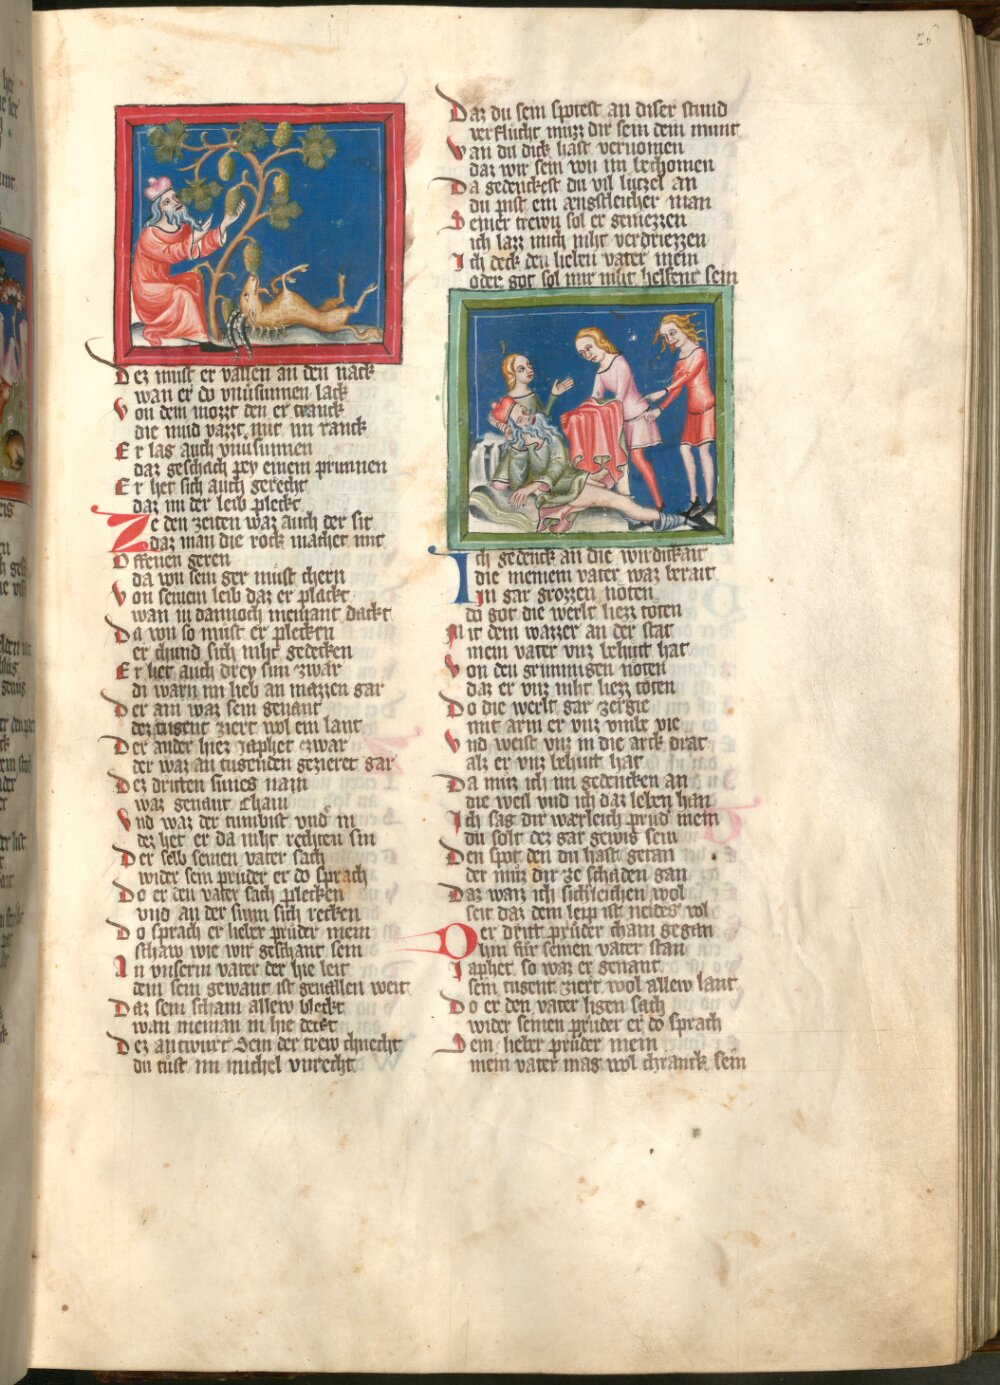 26
Dez must er vallen an den nack
wan er do vnuersunnen lack
Von dem mozzt den er tranck
die mud vazzt mit im ranck
Er lag auch vnuersunnen
daz geschach pey einem prunnen
Er het sich auch gerecht
daz im der leib pleckt
Ze den zeiten waz auch der sit
daz man die rock machet mit
Offenen geren
da von sein ger must chern
Von seinem leib daz er plackt
wan in dannoch niemant dackt
Da von so must er plecken
er chund sich niht gedecken
Er het auch drey sun zwar
di warn im lieb an mazzen gar
Der ain waz Sem genant
dez tugent ziert wol ein lant
Der ander hiez Japhet zwar
der waz an tugenden gezieret gar
Dez dritten sunes nam
waz genant Cham
Vnd waz der tumbist vnder in
dez het er da niht rechten sin
Der selb seinen vater sach
wider sein pruder er do sprach
Do er den vater sach plecken
vnd an der sunn sich recken
Do sprach er lieber pruder mein
schaw wie wir geschant sein
An vnserm vater der hie leit
dem sein gewant ist geuallen weit
Daz sein scham allew bleckt
wan nieman in hie dekt
Dez antwurt Sem der trew chnecht
du tust im michel vnrecht
Daz du sein spotest an diser stund
verflucht muzz dir sein dem munt
Wan du dick hast vernomen
daz wir sein von im bechomen
Da gedenckest du vil lutzel an
du pist ein ængstleicher man
Seiner trewn sol er geniezzen
ich lazz mich niht verdriezzen
Ich deck den lieben vater mein
oder got sol mir niht helfent sein
Ich gedenck an die wirdickait
die meinem vater waz berait
In gar grozzen noten
do got die werlt hiez toten
Mit dem wazzer an der stat
mein vater vnz behut hat
Von den grimmigen noten
daz er vnz niht hiez toten
Do die werlt gar zergie
mit arm er vnz vmbe vie
Vnd weist vnz in die arck drat
alz er vnz behut hat
Da muz ich im gedencken an
die weil vnd ich daz leben han
Ich sag dir wærleich prud mein
du solt dez gar gewis sein
Den spot den du hast getan
der muz dir ze schaden gan
Daz waiz ich sichleichen wol
seit daz dem leip ist neides vol
Der dritt pruder cham gegan
Hin fur seinen vater stan
Japhet so waz er genant
sein tugent ziert wol allew lant
Do er den vater ligen sach
wider seinen pruder er do sprach
Sem lieber pruder mein
mein vater mag wol chranck sein